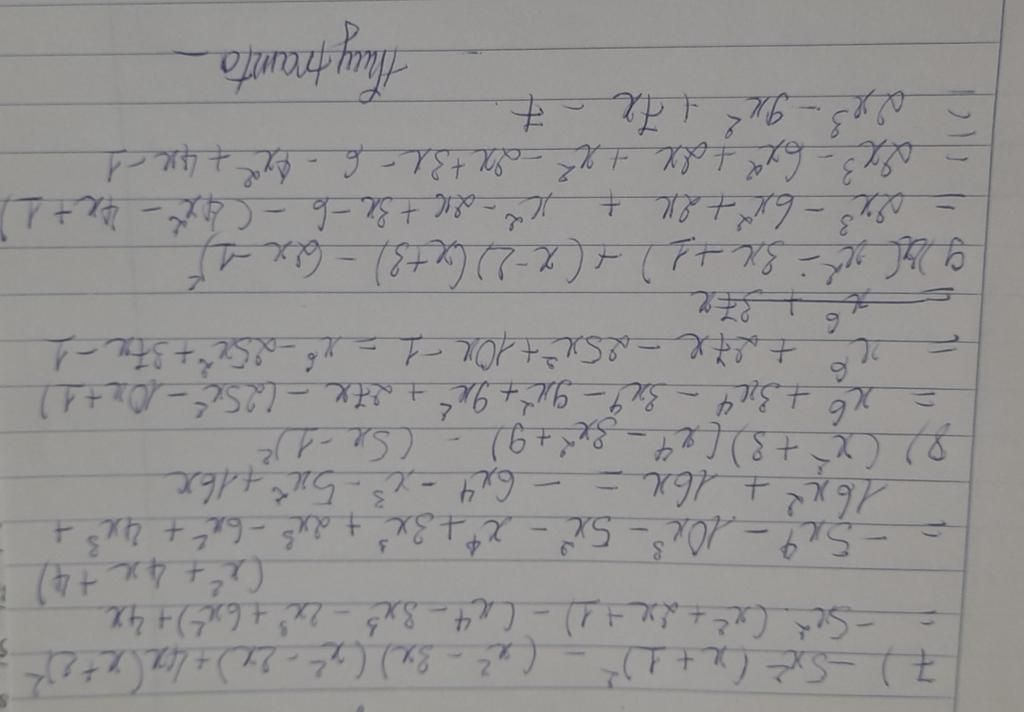 7) -5x²(x+1)² - (x²-3x)(x²-2x) + 4x(x+2)²
= -5x²(x²+2x+1) - (x⁴-3x³-2x³+6x²) + 4x
(x²+4x+4)
= -5x⁴ - 10x³ - 5x² - x⁴ + 3x³ + 2x³ - 6x² + 4x³ +
16x² + 16x = -6x⁴ - x³ - 5x² + 16x
8) (x²+3)(x⁴-3x²+9) - (5x-1)²
= x⁶ + 3x⁴ - 3x⁴ - 9x² + 9x² + 27x - (25x² - 10x + 1)
= x⁶ + 27x - 25x² + 10x - 1 = x⁶ - 25x² + 37x - 1
= x⁶ + 37x
9) 2x(x² - 3x + 1) + (x-2)(x+3) - (2x-1)²
= 2x³ - 6x² + 2x + x² - 2x + 3x - 6 - (4x² - 4x + 1)
= 2x³ - 6x² + 2x + x² - 2x + 3x - 6 - 4x² + 4x - 1
= 2x³ - 9x² + 7x - 7
- thuytramta -